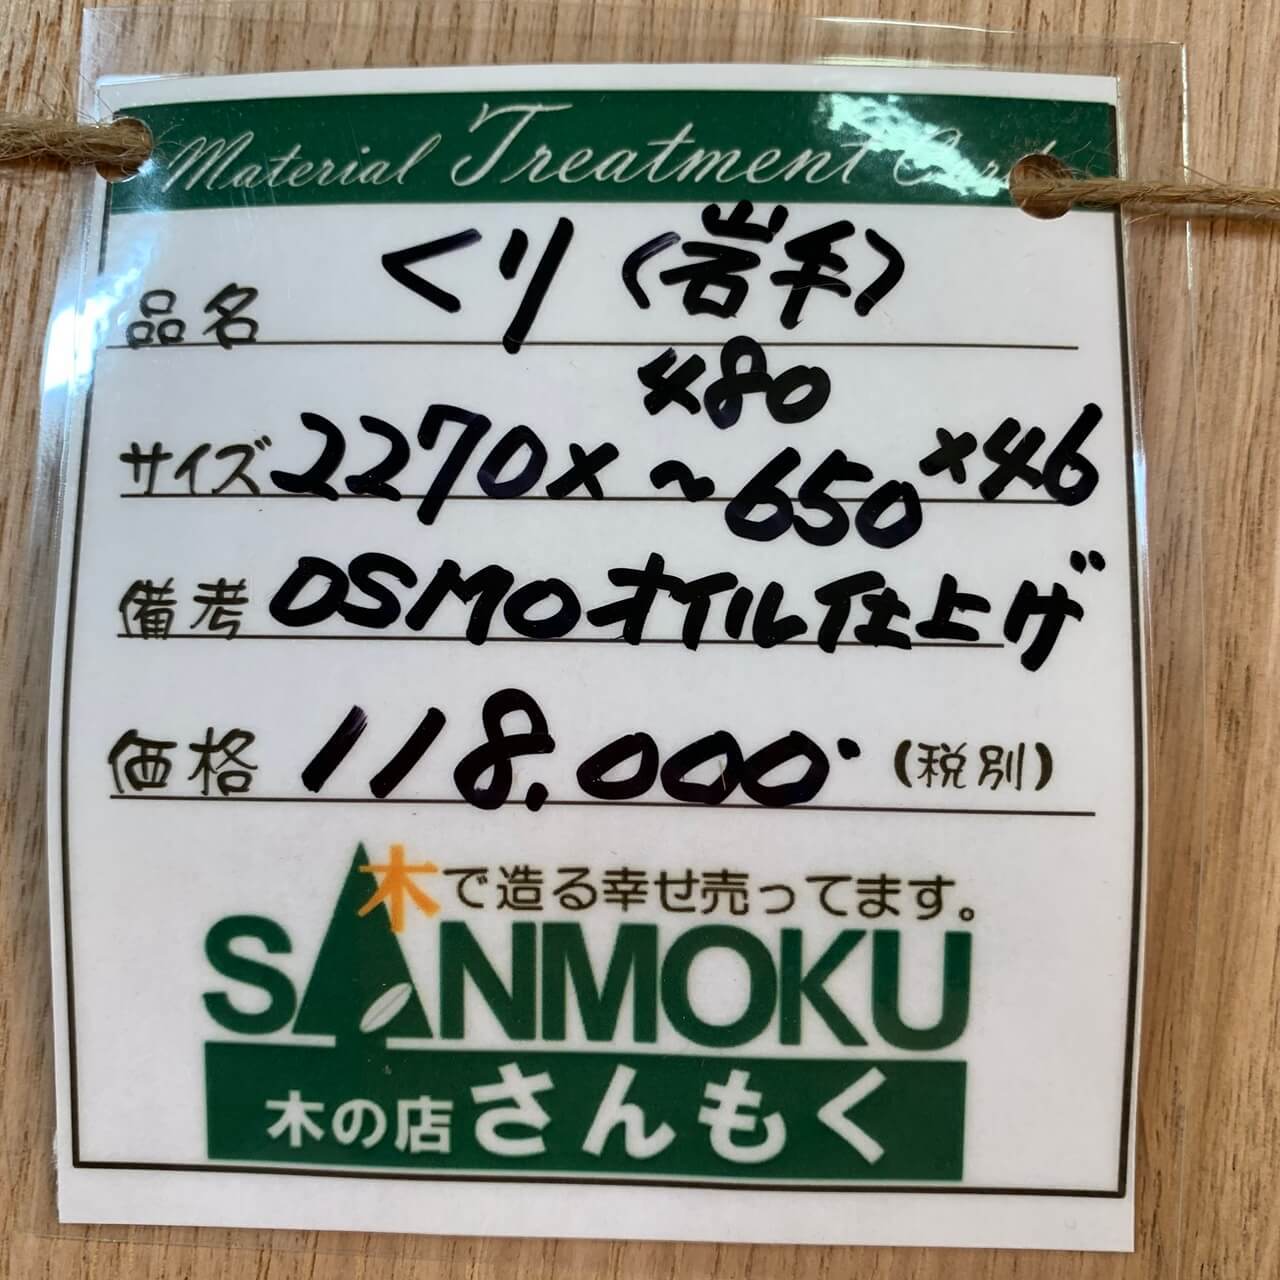 Material Treatment Card
品名 くり(岩手)
サイズ 2270×480～650×46
備考 OSMOオイル仕上げ
価格 118.000 (税別)
木で造る幸せ売ってます。
SANMOKU
木の店さんもく